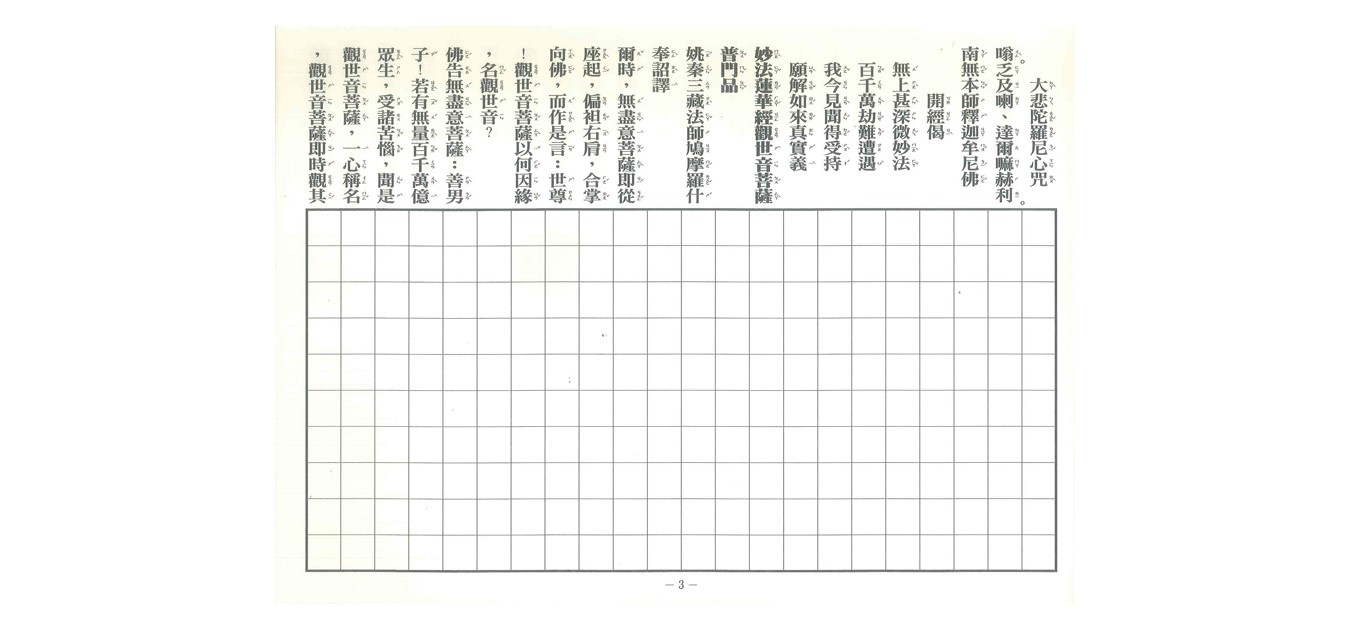 大悲陀羅尼心咒
嗡乏及喇、達爾嘛赫利。
南無本師釋迦牟尼佛
開經偈
無上甚深微妙法
百千萬劫難遭遇
我今見聞得受持
願解如來真實義
妙法蓮華經觀世音菩薩
普門品
姚秦三藏法師鳩摩羅什
奉詔譯
爾時，無盡意菩薩即從
座起，偏袒右肩，合掌
向佛，而作是言：世尊
！觀世音菩薩以何因緣
，名觀世音？
佛告無盡意菩薩：善男
子！若有無量百千萬億
眾生，受諸苦惱，聞是
觀世音菩薩，一心稱名
，觀世音菩薩即時觀其
— 3 —